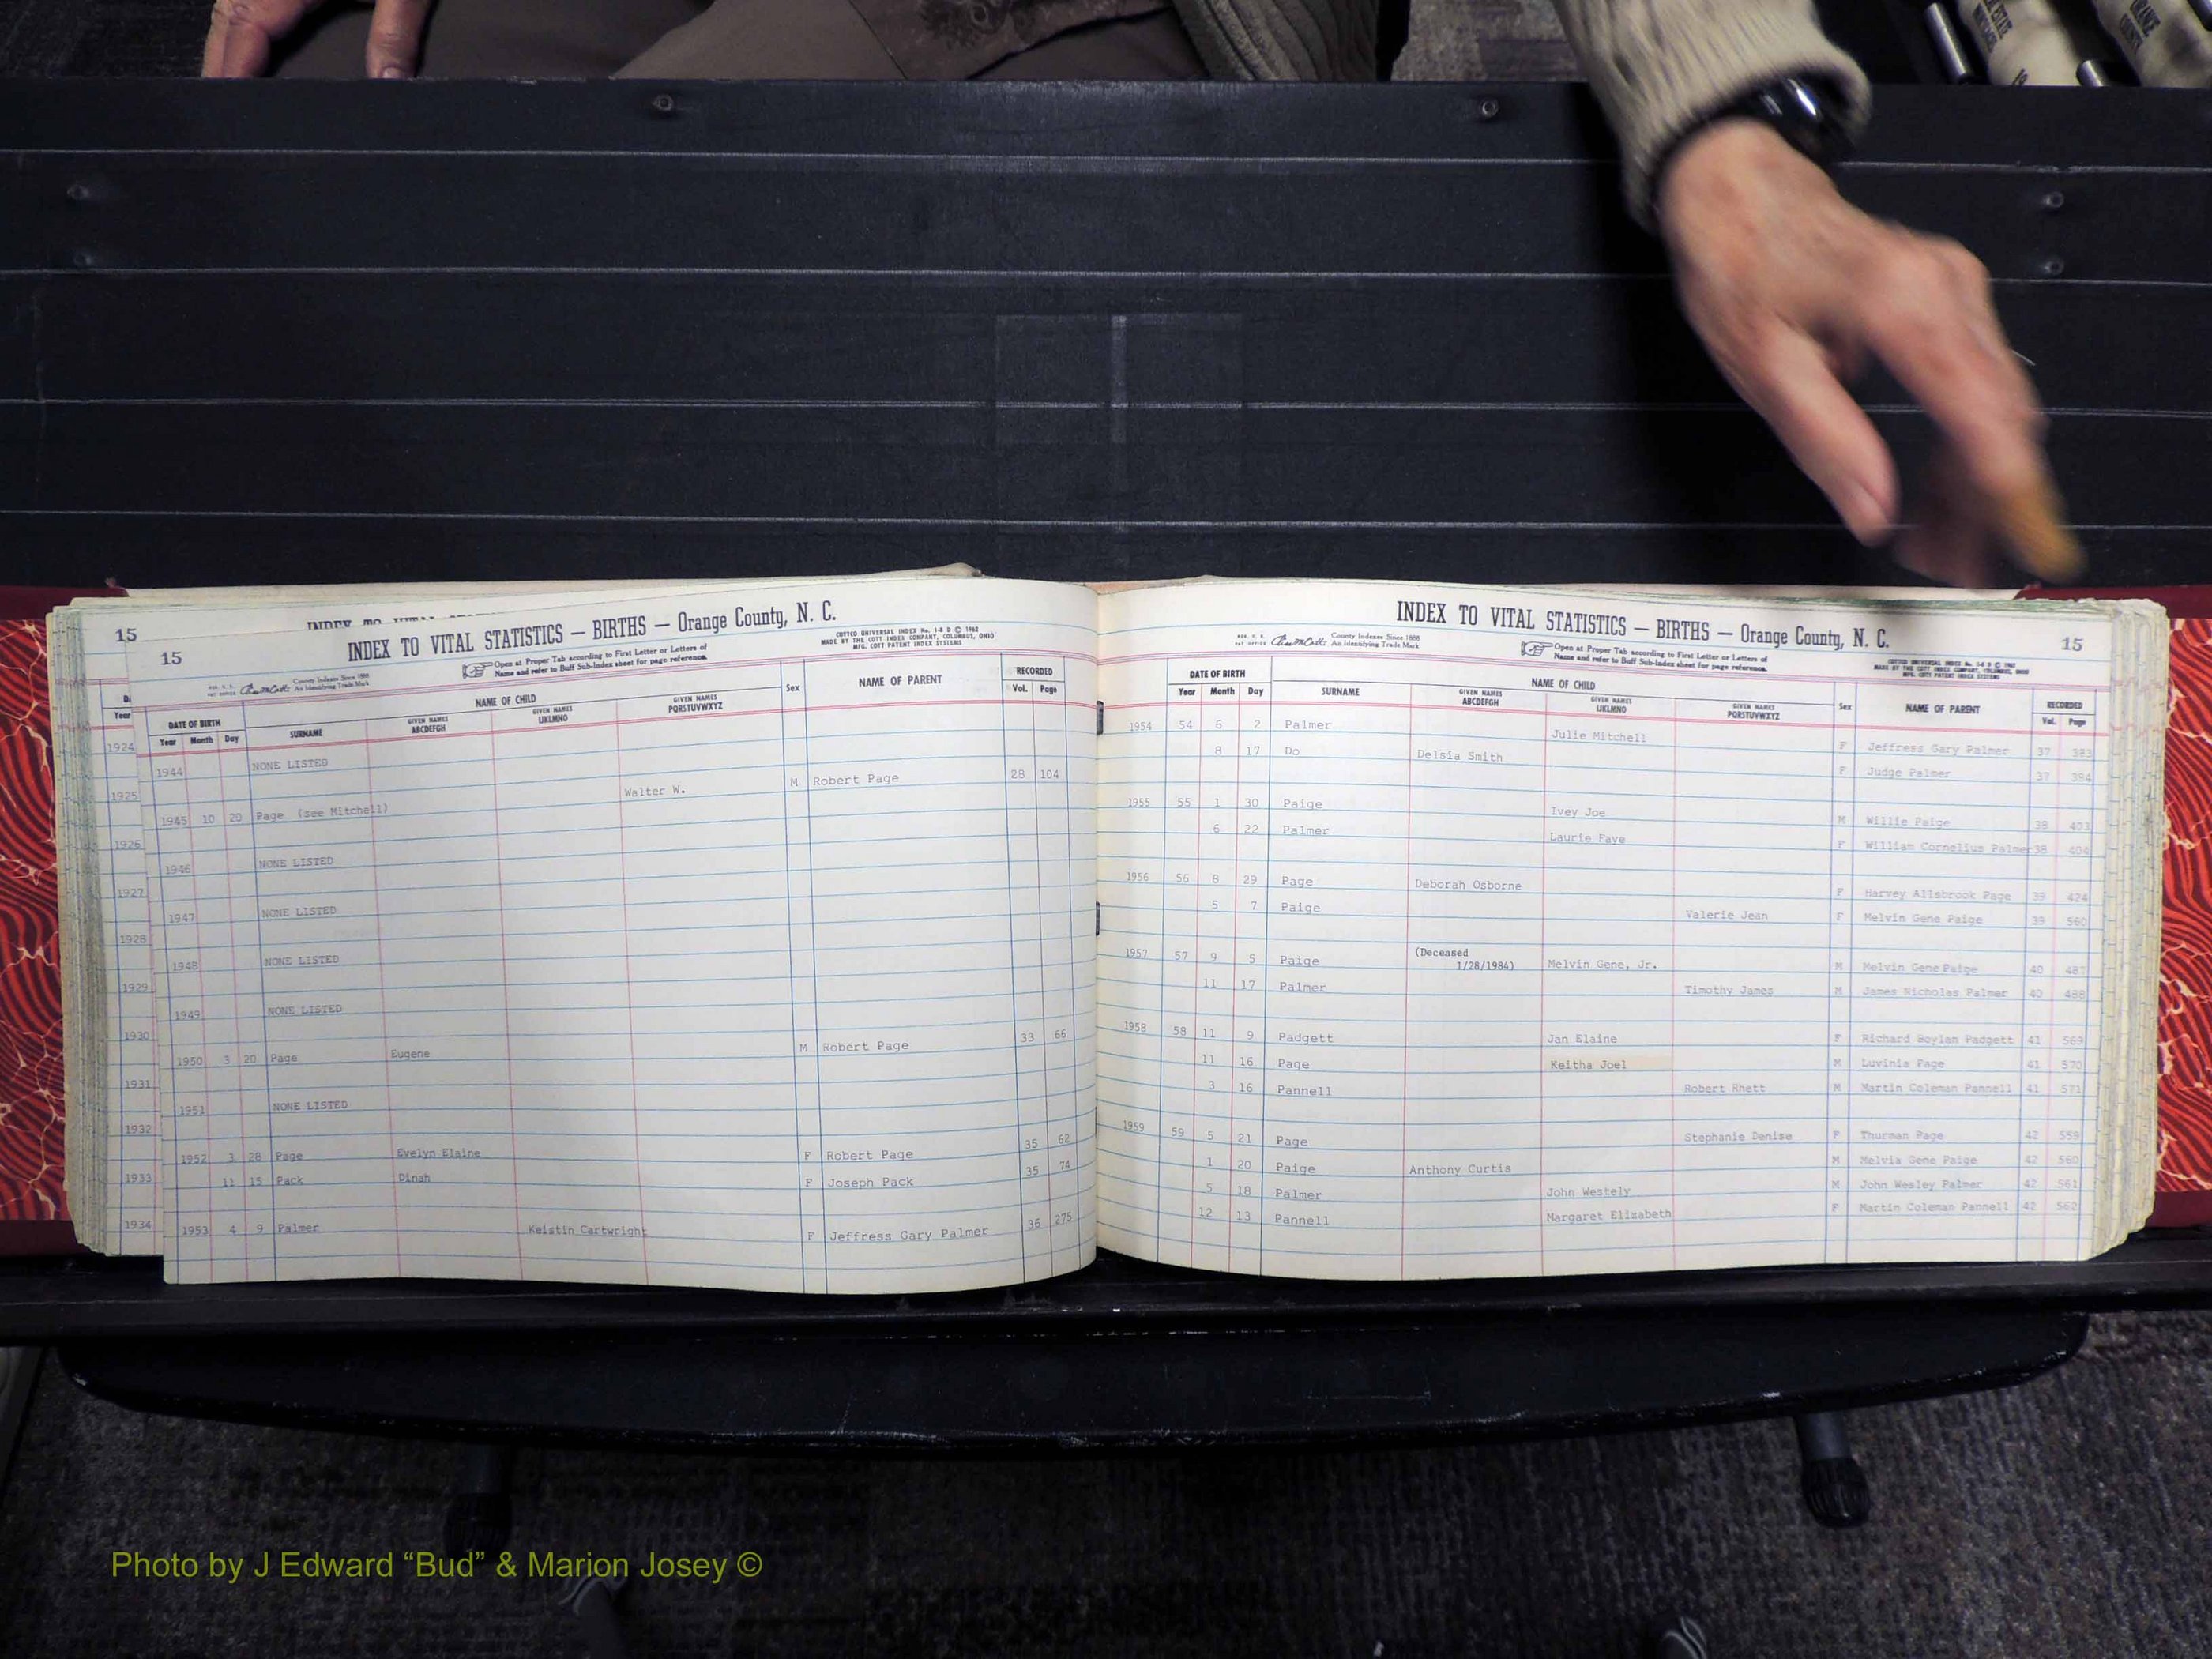 STATE
ORANGE
COUNTY
15
INDEX TO VITAL
15
INDEX TO VITAL STATISTICS — BIRTHS — Orange County, N. C.
Open at Proper Tab according to First Letter or Letters of
Name and refer to Buff Sub-Index sheet for page reference.
COTTCO UNIVERSAL INDEX No. 1-8 D © 1962
MADE BY THE COTT INDEX COMPANY, COLUMBUS, OHIO
MFG. COTT PATENT INDEX SYSTEMS
County Indexes Since 1888
An Identifying Trade Mark
DATE OF BIRTH NAME OF CHILD Sex NAME OF PARENT RECORDED
Year Month Day SURNAME GIVEN NAMES ABCDEFGH GIVEN NAMES IJKLMNO GIVEN NAMES PQRSTUVWXYZ Vol. Page
Year
1924
1925
1926
1927
1928
1929
1930
1931
1932
1933
1934
1944 NONE LISTED
1945 10 20 Page (see Mitchell) Walter W. M Robert Page 28 104
1946 NONE LISTED
1947 NONE LISTED
1948 NONE LISTED
1949 NONE LISTED
1950 3 20 Page Eugene M Robert Page 33 66
1951 NONE LISTED
1952 3 28 Page Evelyn Elaine F Robert Page 35 62
11 15 Pack Dinah F Joseph Pack 35 74
1953 4 9 Palmer Keistin Cartwright F Jeffress Gary Palmer 36 275
INDEX TO VITAL STATISTICS — BIRTHS — Orange County, N. C.
15
County Indexes Since 1888
An Identifying Trade Mark
Open at Proper Tab according to First Letter or Letters of
Name and refer to Buff Sub-Index sheet for page reference.
COTTCO UNIVERSAL INDEX No. 1-8 D © 1962
MADE BY THE COTT INDEX COMPANY, COLUMBUS, OHIO
MFG. COTT PATENT INDEX SYSTEMS
DATE OF BIRTH NAME OF CHILD Sex NAME OF PARENT RECORDED
Year Month Day SURNAME GIVEN NAMES ABCDEFGH GIVEN NAMES IJKLMNO GIVEN NAMES PQRSTUVWXYZ Vol. Page
1954 54 6 2 Palmer Julie Mitchell F Jeffress Gary Palmer 37 383
8 17 Do Delsia Smith F Judge Palmer 37 384
1955 55 1 30 Paige Ivey Joe M Willie Paige 38 403
6 22 Palmer Laurie Faye F William Cornelius Palmer 38 404
1956 56 8 29 Page Deborah Osborne F Harvey Allsbrook Page 39 424
5 7 Paige Valerie Jean F Melvin Gene Paige 39 560
1957 57 9 5 Paige (Deceased 1/28/1984) Melvin Gene, Jr. M Melvin Gene Paige 40 487
11 17 Palmer Timothy James M James Nicholas Palmer 40 488
1958 58 11 9 Padgett Jan Elaine F Richard Boylan Padgett 41 569
11 16 Page Keitha Joel M Luvinia Page 41 570
3 16 Pannell Robert Rhett M Martin Coleman Pannell 41 571
1959 59 5 21 Page Stephanie Denise F Thurman Page 42 559
1 20 Paige Anthony Curtis M Melvia Gene Paige 42 560
5 18 Palmer John Westely M John Wesley Palmer 42 561
12 13 Pannell Margaret Elizabeth F Martin Coleman Pannell 42 562
Photo by J Edward “Bud” & Marion Josey ©